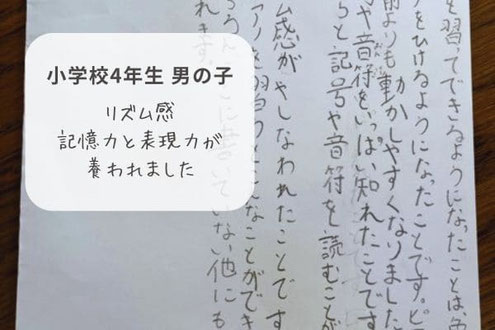 小学校4年生 男の子
リズム感
記憶力と表現力が
養われました
と習ってできるようになったことは
をひけるようになったことです。ピ
前よりも動かしやすくなりました
や音符をいっぱい知れたことです
らと記号や音符を読むことが
ム感がやしなわれたことです
アノを習うとこんなことができ
に書いていない他にも
れます